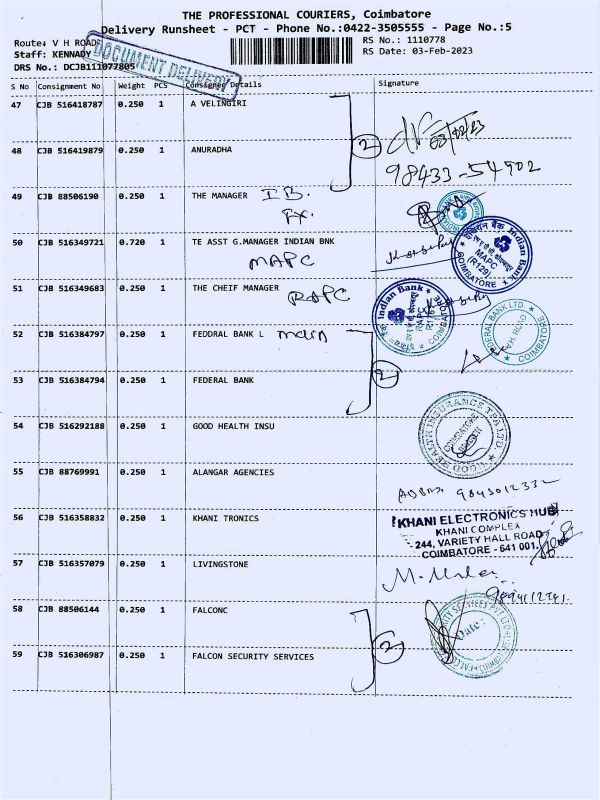 THE PROFESSIONAL COURIERS, Coimbatore
Delivery Runsheet - PCT - Phone No.:0422-3505555 - Page No.:5
Route: V H ROAD
RS No.: 1110778
Staff: KENNADY
RS Date: 03-Feb-2023
DRS No.: DCJB111077805
DOCUMENT DELIVERY
S No Consignment No Weight PCS Consignee Details Signature
47 CJB 516418787 0.250 1 A VELINGIRI
2
03/02/23
48 CJB 516419879 0.250 1 ANURADHA
98433-54902
49 CJB 88506190 0.250 1 THE MANAGER I B.
50 CJB 516349721 0.720 1 TE ASST G.MANAGER INDIAN BNK
MAPC
Indian Bank
MAPC
(R129)
COIMBATORE
51 CJB 516349683 0.250 1 THE CHEIF MANAGER
RAPC
Indian Bank
RAPC
COIMBATORE
52 CJB 516384797 0.250 1 FEDDRAL BANK L main
FEDERAL BANK LTD.
COIMBATORE
2
53 CJB 516384794 0.250 1 FEDERAL BANK
54 CJB 516292188 0.250 1 GOOD HEALTH INSU
GOOD HEALTH INSURANCE TPA LTD.
COIMBATORE
55 CJB 88769991 0.250 1 ALANGAR AGENCIES
9843012332
56 CJB 516358832 0.250 1 KHANI TRONICS
KHANI ELECTRONICS HUB
KHANI COMPLEX
244, VARIETY HALL ROAD
COIMBATORE - 641 001.
57 CJB 516357079 0.250 1 LIVINGSTONE
58 CJB 88506144 0.250 1 FALCONC
2
Date:
59 CJB 516306987 0.250 1 FALCON SECURITY SERVICES